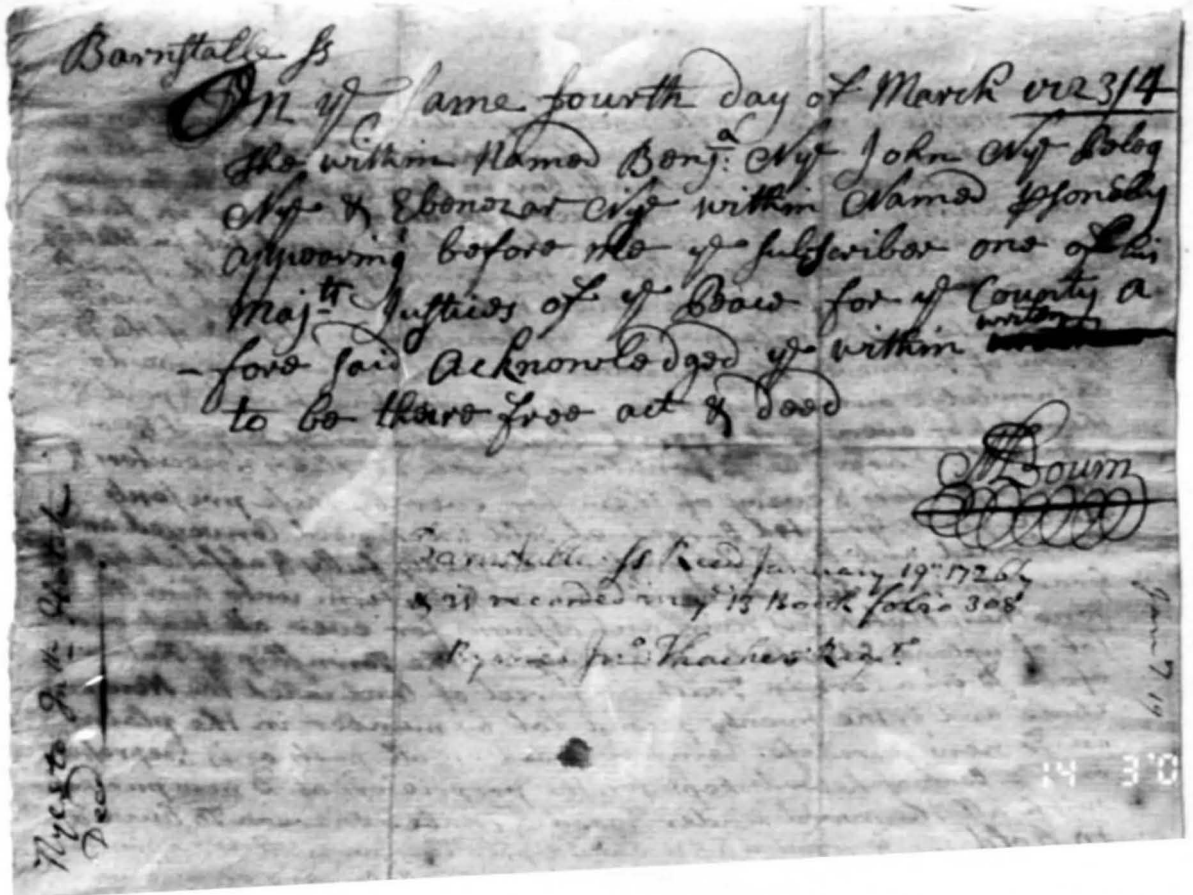 Barnstable ss
On ye same fourth day of March 1723/4
the within Named Benja: Nye John Nye Peleg
Nye & Ebenezar Nye within Named psonally
appearing before me ye subscriber one of his
majtts Justices of ye Peace for ye County a
written
-fore said Acknowledged ye within
to be theire free act & deed
MBourn
Barnstable ss Recd January 19th 1726/7
& is recorded in ye 13 Book folio 308
By me Jno Thacher Regr.
Nyes to
Deed
Jan 19
14 3'0